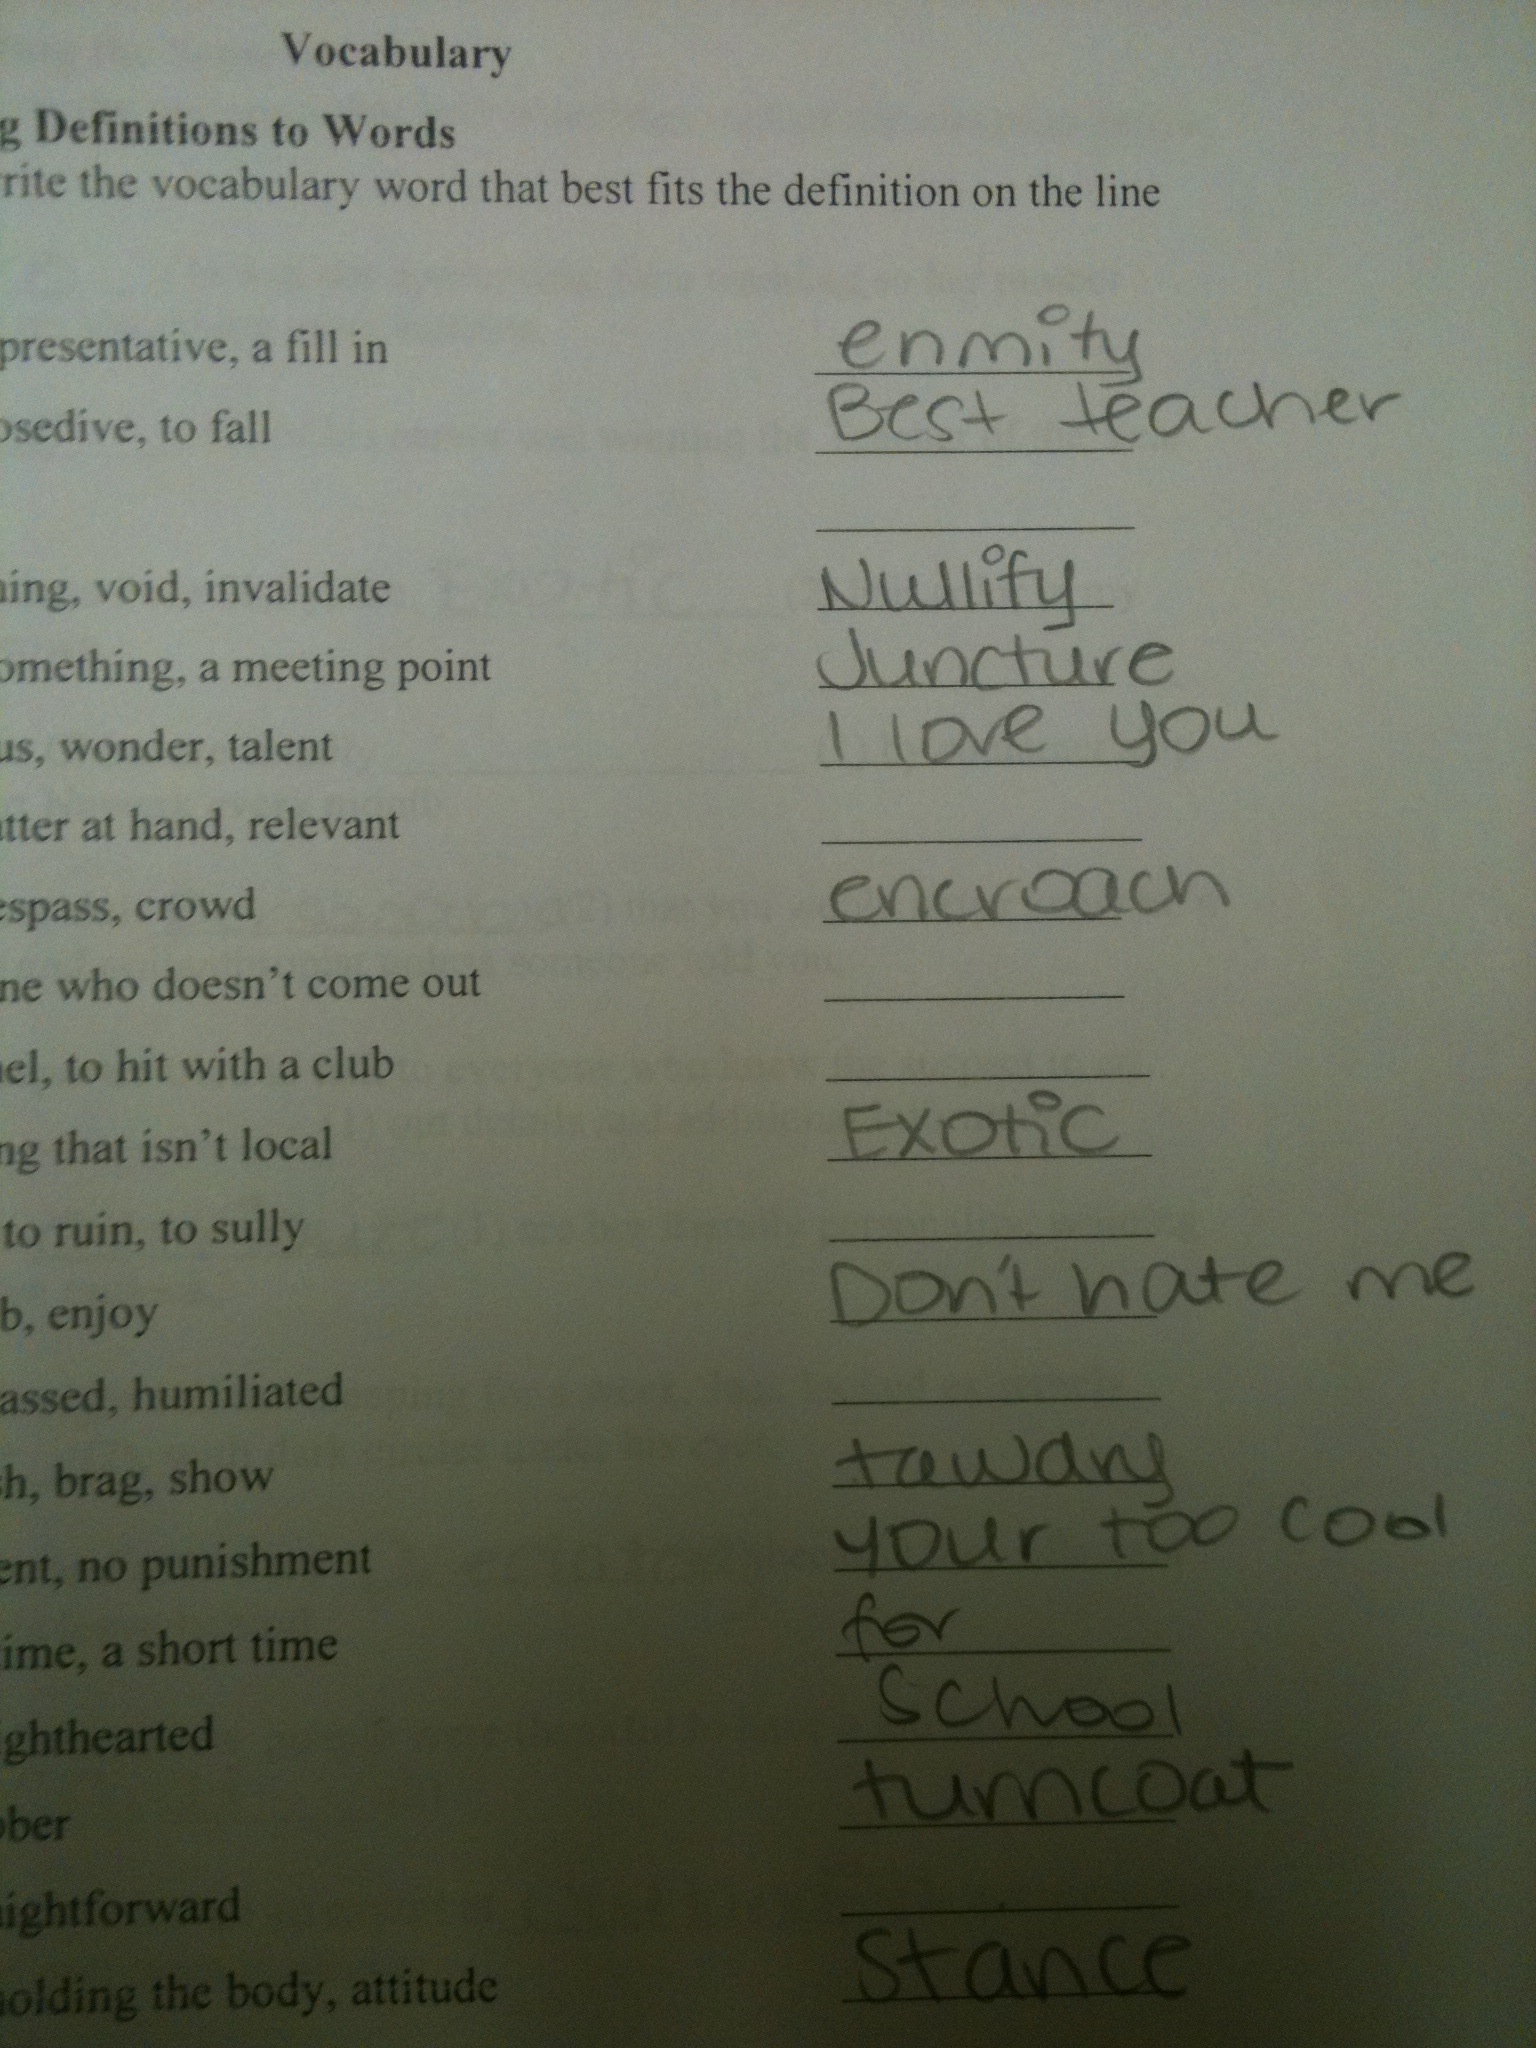 Vocabulary
g Definitions to Words
rite the vocabulary word that best fits the definition on the line
presentative, a fill in enmity
osedive, to fall Best teacher
ning, void, invalidate Nullify
omething, a meeting point Juncture
us, wonder, talent I love you
atter at hand, relevant
espass, crowd encroach
ne who doesn't come out
nel, to hit with a club
ng that isn't local Exotic
to ruin, to sully
b, enjoy Don't hate me
assed, humiliated
sh, brag, show tawdry
ent, no punishment your too cool
time, a short time for
ighthearted school
bber turncoat
aightforward
holding the body, attitude Stance